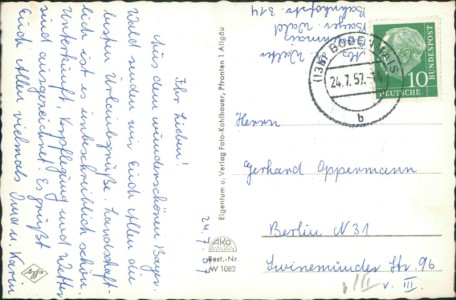 Ihr Lieben!
Aus dem wunderschönen Bayer.
Wald senden wir Euch allen die
besten Urlaubsgrüße. Landschaft-
lich ist es unbeschreiblich schön.
Unterkunft, Verpflegung und Wetter
sind ausgezeichnet. Es grüßt
Euch allen vielmals Omi u. Karin
24.7.57
Bodenmais
Bayer. Wald
Bahnhofstr. 314
(13b) BODENMAIS
24.7.57.-1
b
10
DEUTSCHE
BUNDESPOST
Eigentum u. Verlag Foto-Kohlbauer, Pfronten i. Allgäu
Best.-Nr.
W 1082
Agfa
Herrn
Gerhard Oppermann
Berlin N 31
Swinemünder Str. 96
v. III.